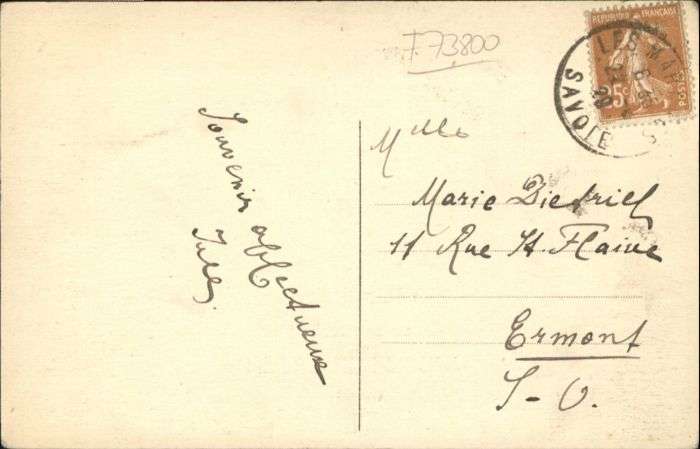 F.73800
REPUBLIQUE FRANÇAISE
25c
POSTES
LES MA
SAVOIE
Souvenir
affectueux
Jules
Mlle
Marie Dietrich
11 Rue St Flaive
Ermont
S-O.